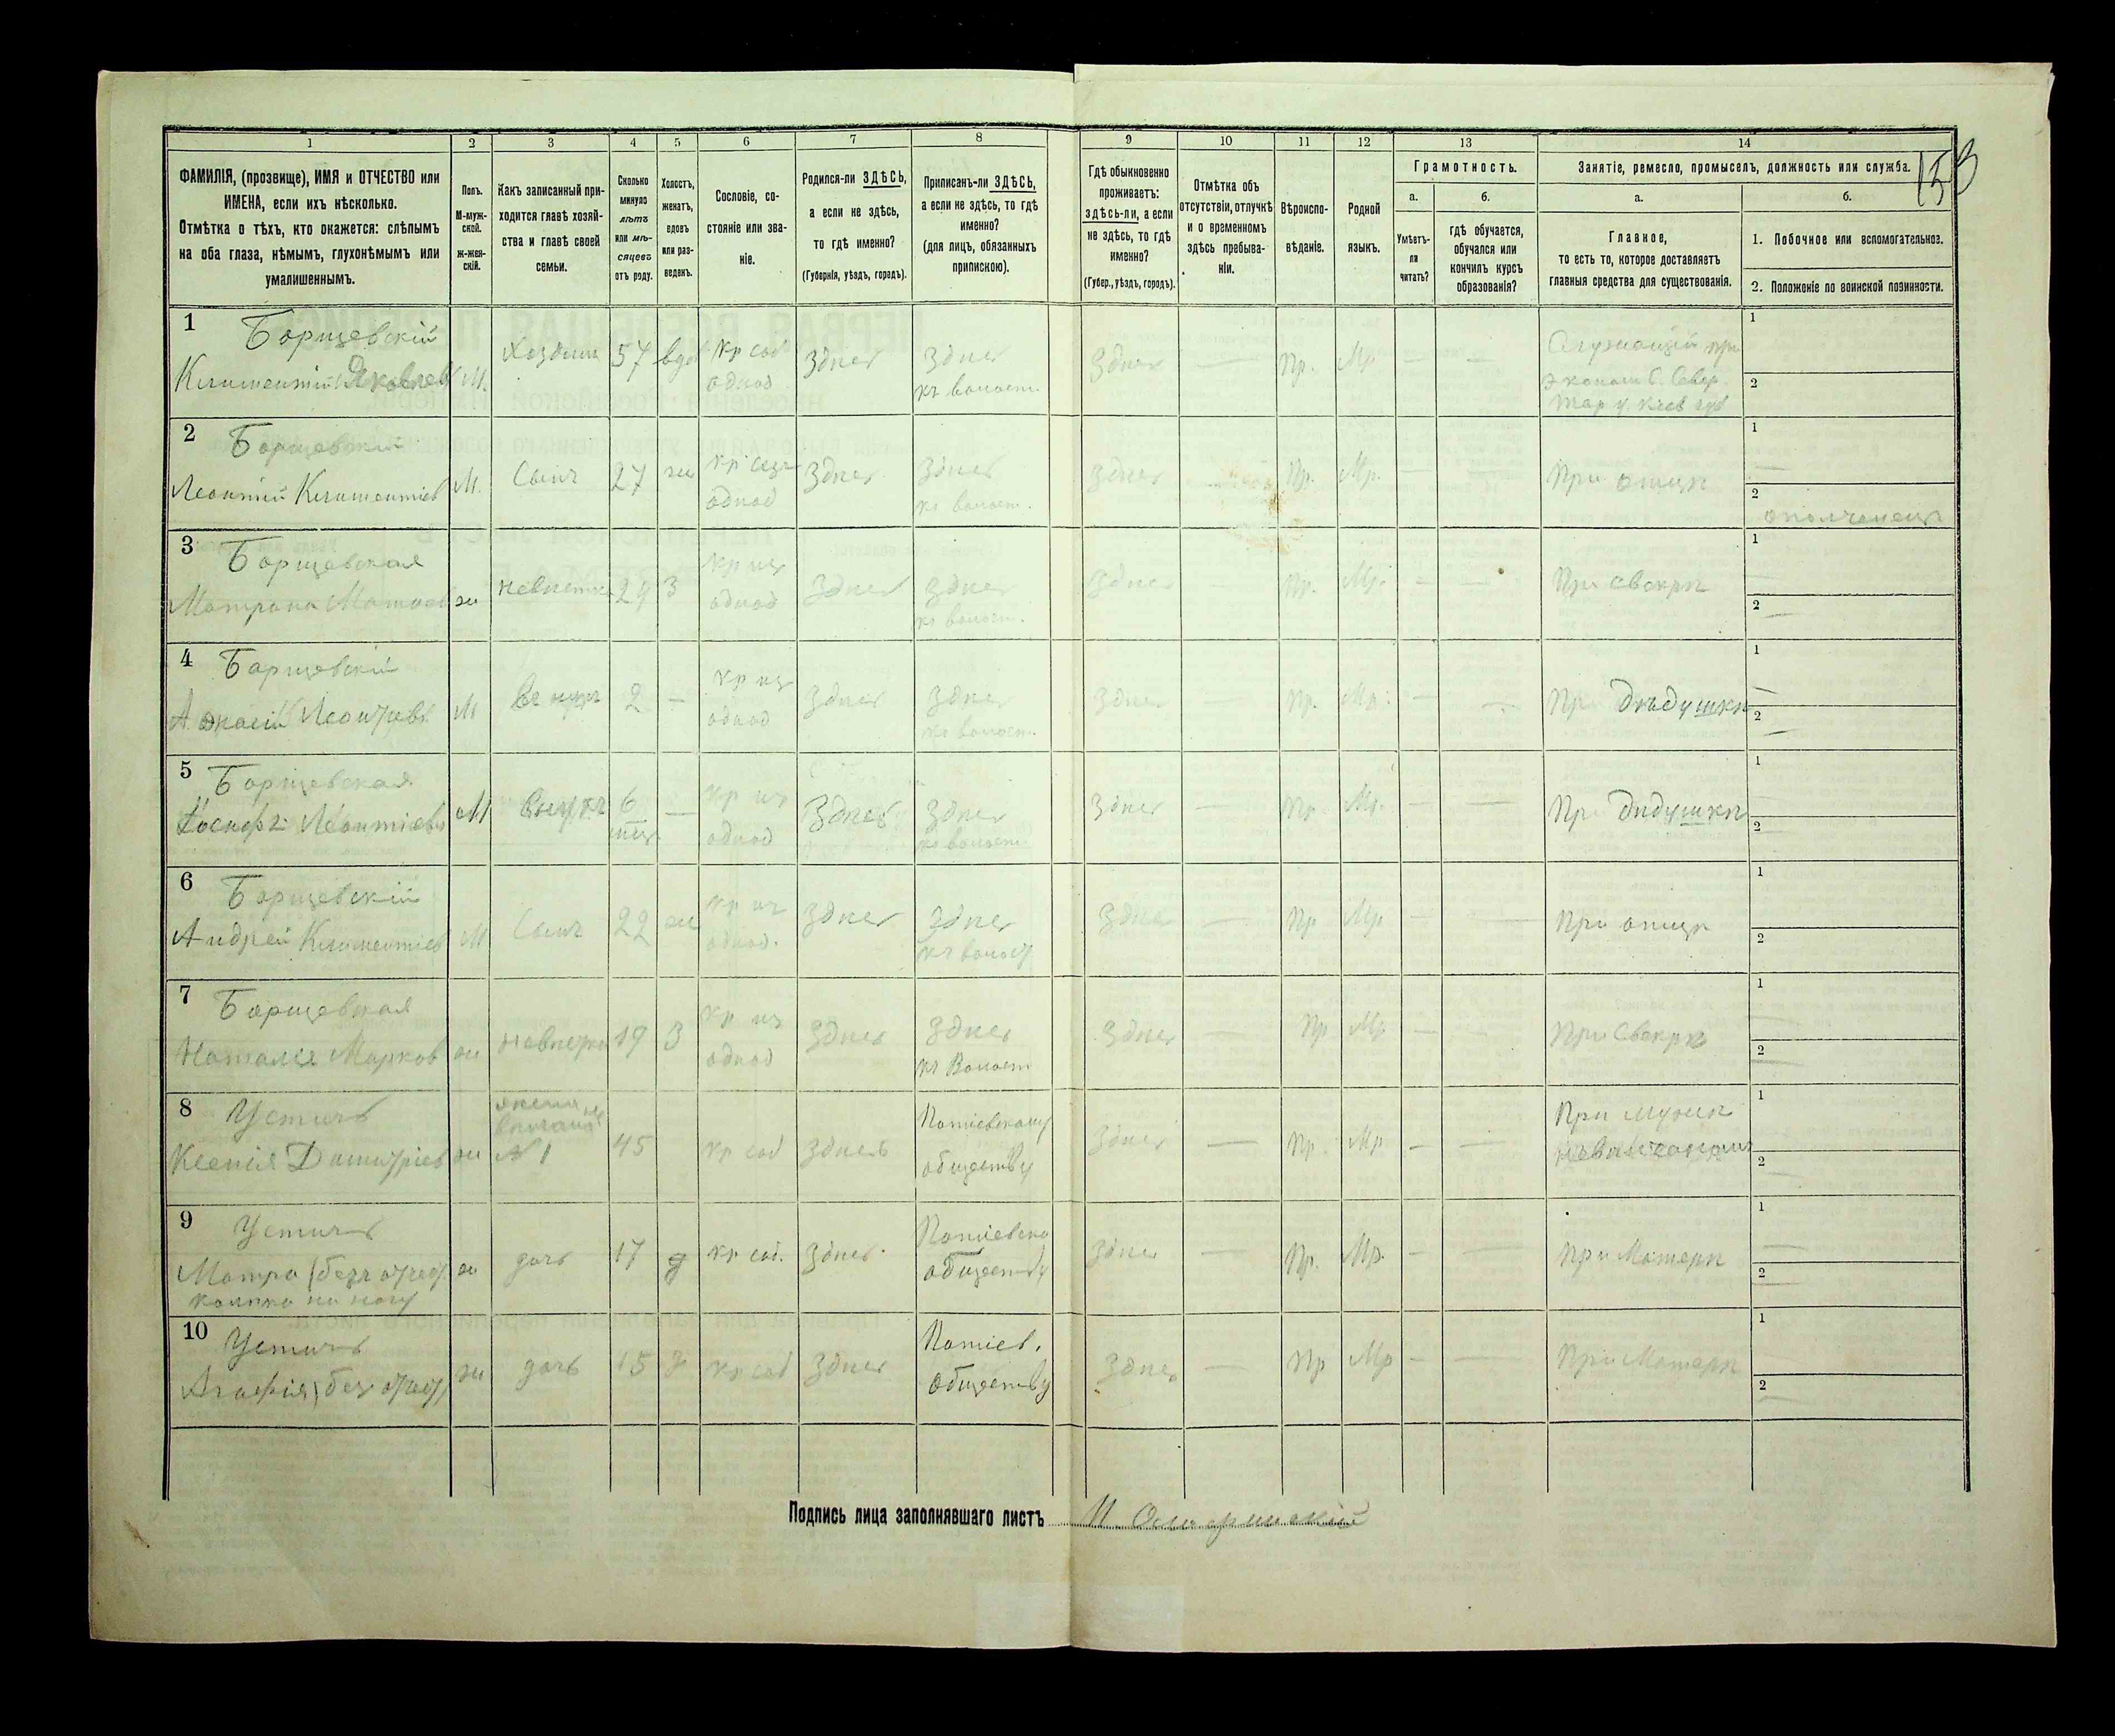 1 2 3 4 5 6 7 8 9 10 11 12 13 14
153
ФАМИЛІЯ, (прозвище), ИМЯ и ОТЧЕСТВО или
ИМЕНА, если ихъ нѣсколько.
Отмѣтка о тѣхъ, кто окажется: слѣпымъ
на оба глаза, нѣмымъ, глухонѣмымъ или
умалишеннымъ.
Полъ.
М-муж-
ской.
Ж-жен-
скій.
Какъ записанный при-
ходится главѣ хозяй-
ства и главѣ своей
семьи.
Сколько
минуло
лѣтъ
или мѣ-
сяцевъ
отъ роду.
Холостъ,
женатъ,
вдовъ
или раз-
веденъ.
Сословіе, со-
стояніе или зва-
ніе.
Родился-ли ЗДѢСЬ,
а если не здѣсь,
то гдѣ именно?
(Губернія, уѣздъ, городъ).
Приписанъ-ли ЗДѢСЬ,
а если не здѣсь, то гдѣ
именно?
(для лицъ, обязанныхъ
припискою).
Гдѣ обыкновенно
проживаетъ:
здѣсь-ли, а если
не здѣсь, то гдѣ
именно?
(Губер., уѣздъ, городъ).
Отмѣтка объ
отсутствіи, отлучкѣ
и о временномъ
здѣсь пребыва-
ніи.
Вѣроиспо-
вѣданіе.
Родной
языкъ.
Грамотность.
а.
Умѣетъ-
ли
читать?
б.
гдѣ обучается,
обучался или
кончилъ курсъ
образованія?
Занятіе, ремесло, промыселъ, должность или служба.
а.
Главное,
то есть то, которое доставляетъ
главныя средства для существованія.
б.
1. Побочное или вспомогательное.
2. Положеніе по воинской повинности.
1 Борщевскій
Климентій Яковлев М. Хозяин 57 вдов кр соб однод Здѣсь Здѣсь къ волост. Здѣсь — Пр. Мр — — Служащій при
1
2
2 Борщевскій
Леонтій Климентіев М. Сынъ 27 ж однод Здѣсь Здѣсь къ волост. Здѣсь Пр. Мр. — — При отцѣ
1 —
2 ополченец
3 Борщевская
Матрона ж невѣстка 29 З кр из однод Здѣсь Здѣсь къ волост. Здѣсь Пр. Мр. — — При свекрѣ
1
2 —
4 Борщевскій
Леонтьев М внукъ 2 — кр из однод Здѣсь Здѣсь къ волост. Здѣсь — Пр. Мр. — — При дѣдушкѣ
1 —
2 —
5 Борщевская
Іосифъ Леонтіевъ М внукъ 6 мѣс — кр из однод Здѣсь Здѣсь къ волост. Здѣсь — Пр Мр. — — При дѣдушкѣ
1
2
6 Борщевскій
Андрей Климентіев М Сынъ 22 ж кр из однод. Здѣсь Здѣсь къ волост Здѣсь — Пр Мр — — При отцѣ
1
2
7 Борщевская
Наталія Марков ж невѣстка 19 З кр из однод Здѣсь Здѣсь къ Волост Здѣсь — Пр Мр — — При свекрѣ
1
2 —
8 Устичъ
Ксенія Дмитріев ж № 1 45 кр соб здѣсь обществу Здѣсь — Пр. Мр — — При мужѣ
невѣнчаном
1
2 —
9 Устичъ
Матро (безъ отчес. ж дочь 17 д кр соб. Здѣсь обществу Здѣсь — Пр. Мр. — — При Матери
на ногу
1 —
2 —
10 Устичъ
Агафія (без отчес. ж дочь 15 д кр соб Здѣсь обществу Здѣсь — Пр Мр — — При Матери
1
2 —
Подпись лица заполнявшаго листъ